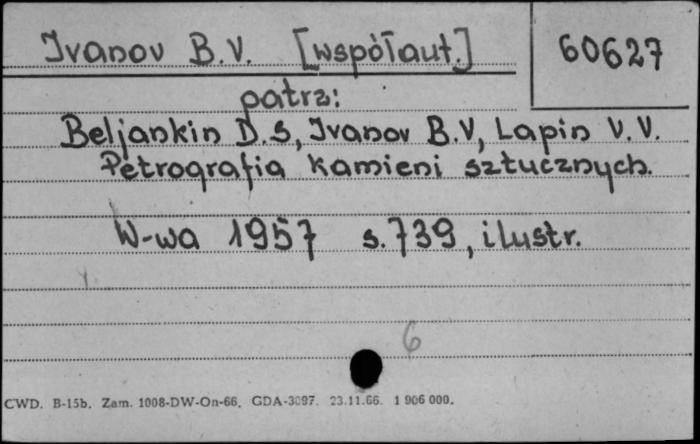 Ivanov B.V. [współaut.] 60627
patrz:
Beljankin D.S, Ivanov B.V, Lapin V.V.
Petrografia kamieni sztucznych.
W-wa 1957 s. 739, ilustr.
6
CWD. B-15b. Zam. 1008-DW-On-66. GDA-3097. 23.11.66. 1 906 000.